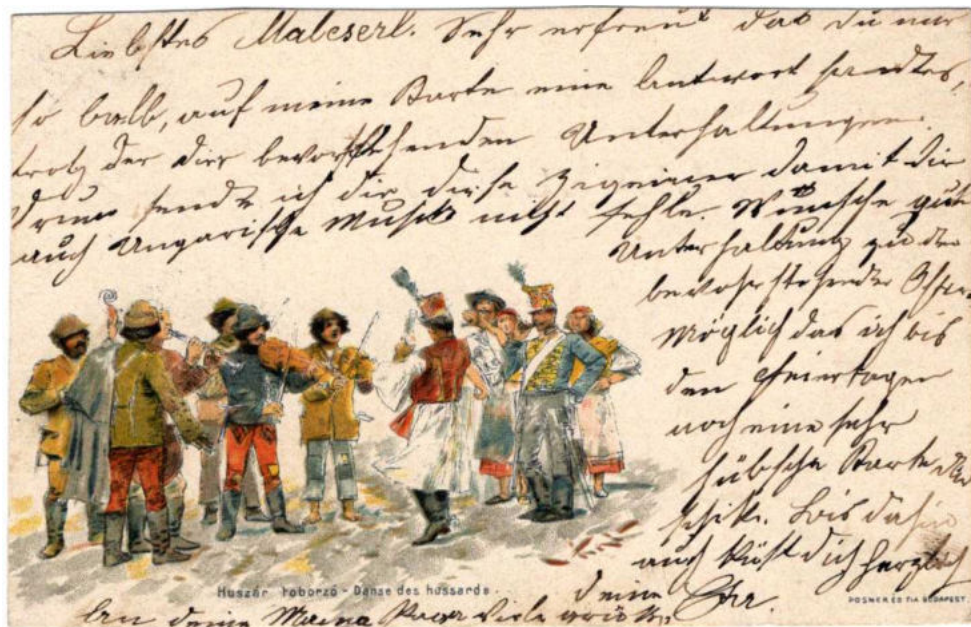 Liebstes Malcserl. Sehr erfreut das du mir
so balb, auf meine Karte eine Antwort sandtes,
trotz der dir bevorstehenden Unterhaltungen.
Drum sende ich dir diese Zigeiner damit dir
auch Ungarische Musik nicht fehle. Wünsche gute
Unterhaltung zu den
bevohrstehenden
Möglich das ich bis
den Feiertagen
noch eine sehr
hübsche Karte
schik. Bis dahin
auch küßt dich herzlich
deine
Huszár toborzó - Danse des hussards.
POSNER ÉS FIA BUDAPEST.
An deine Mama viele